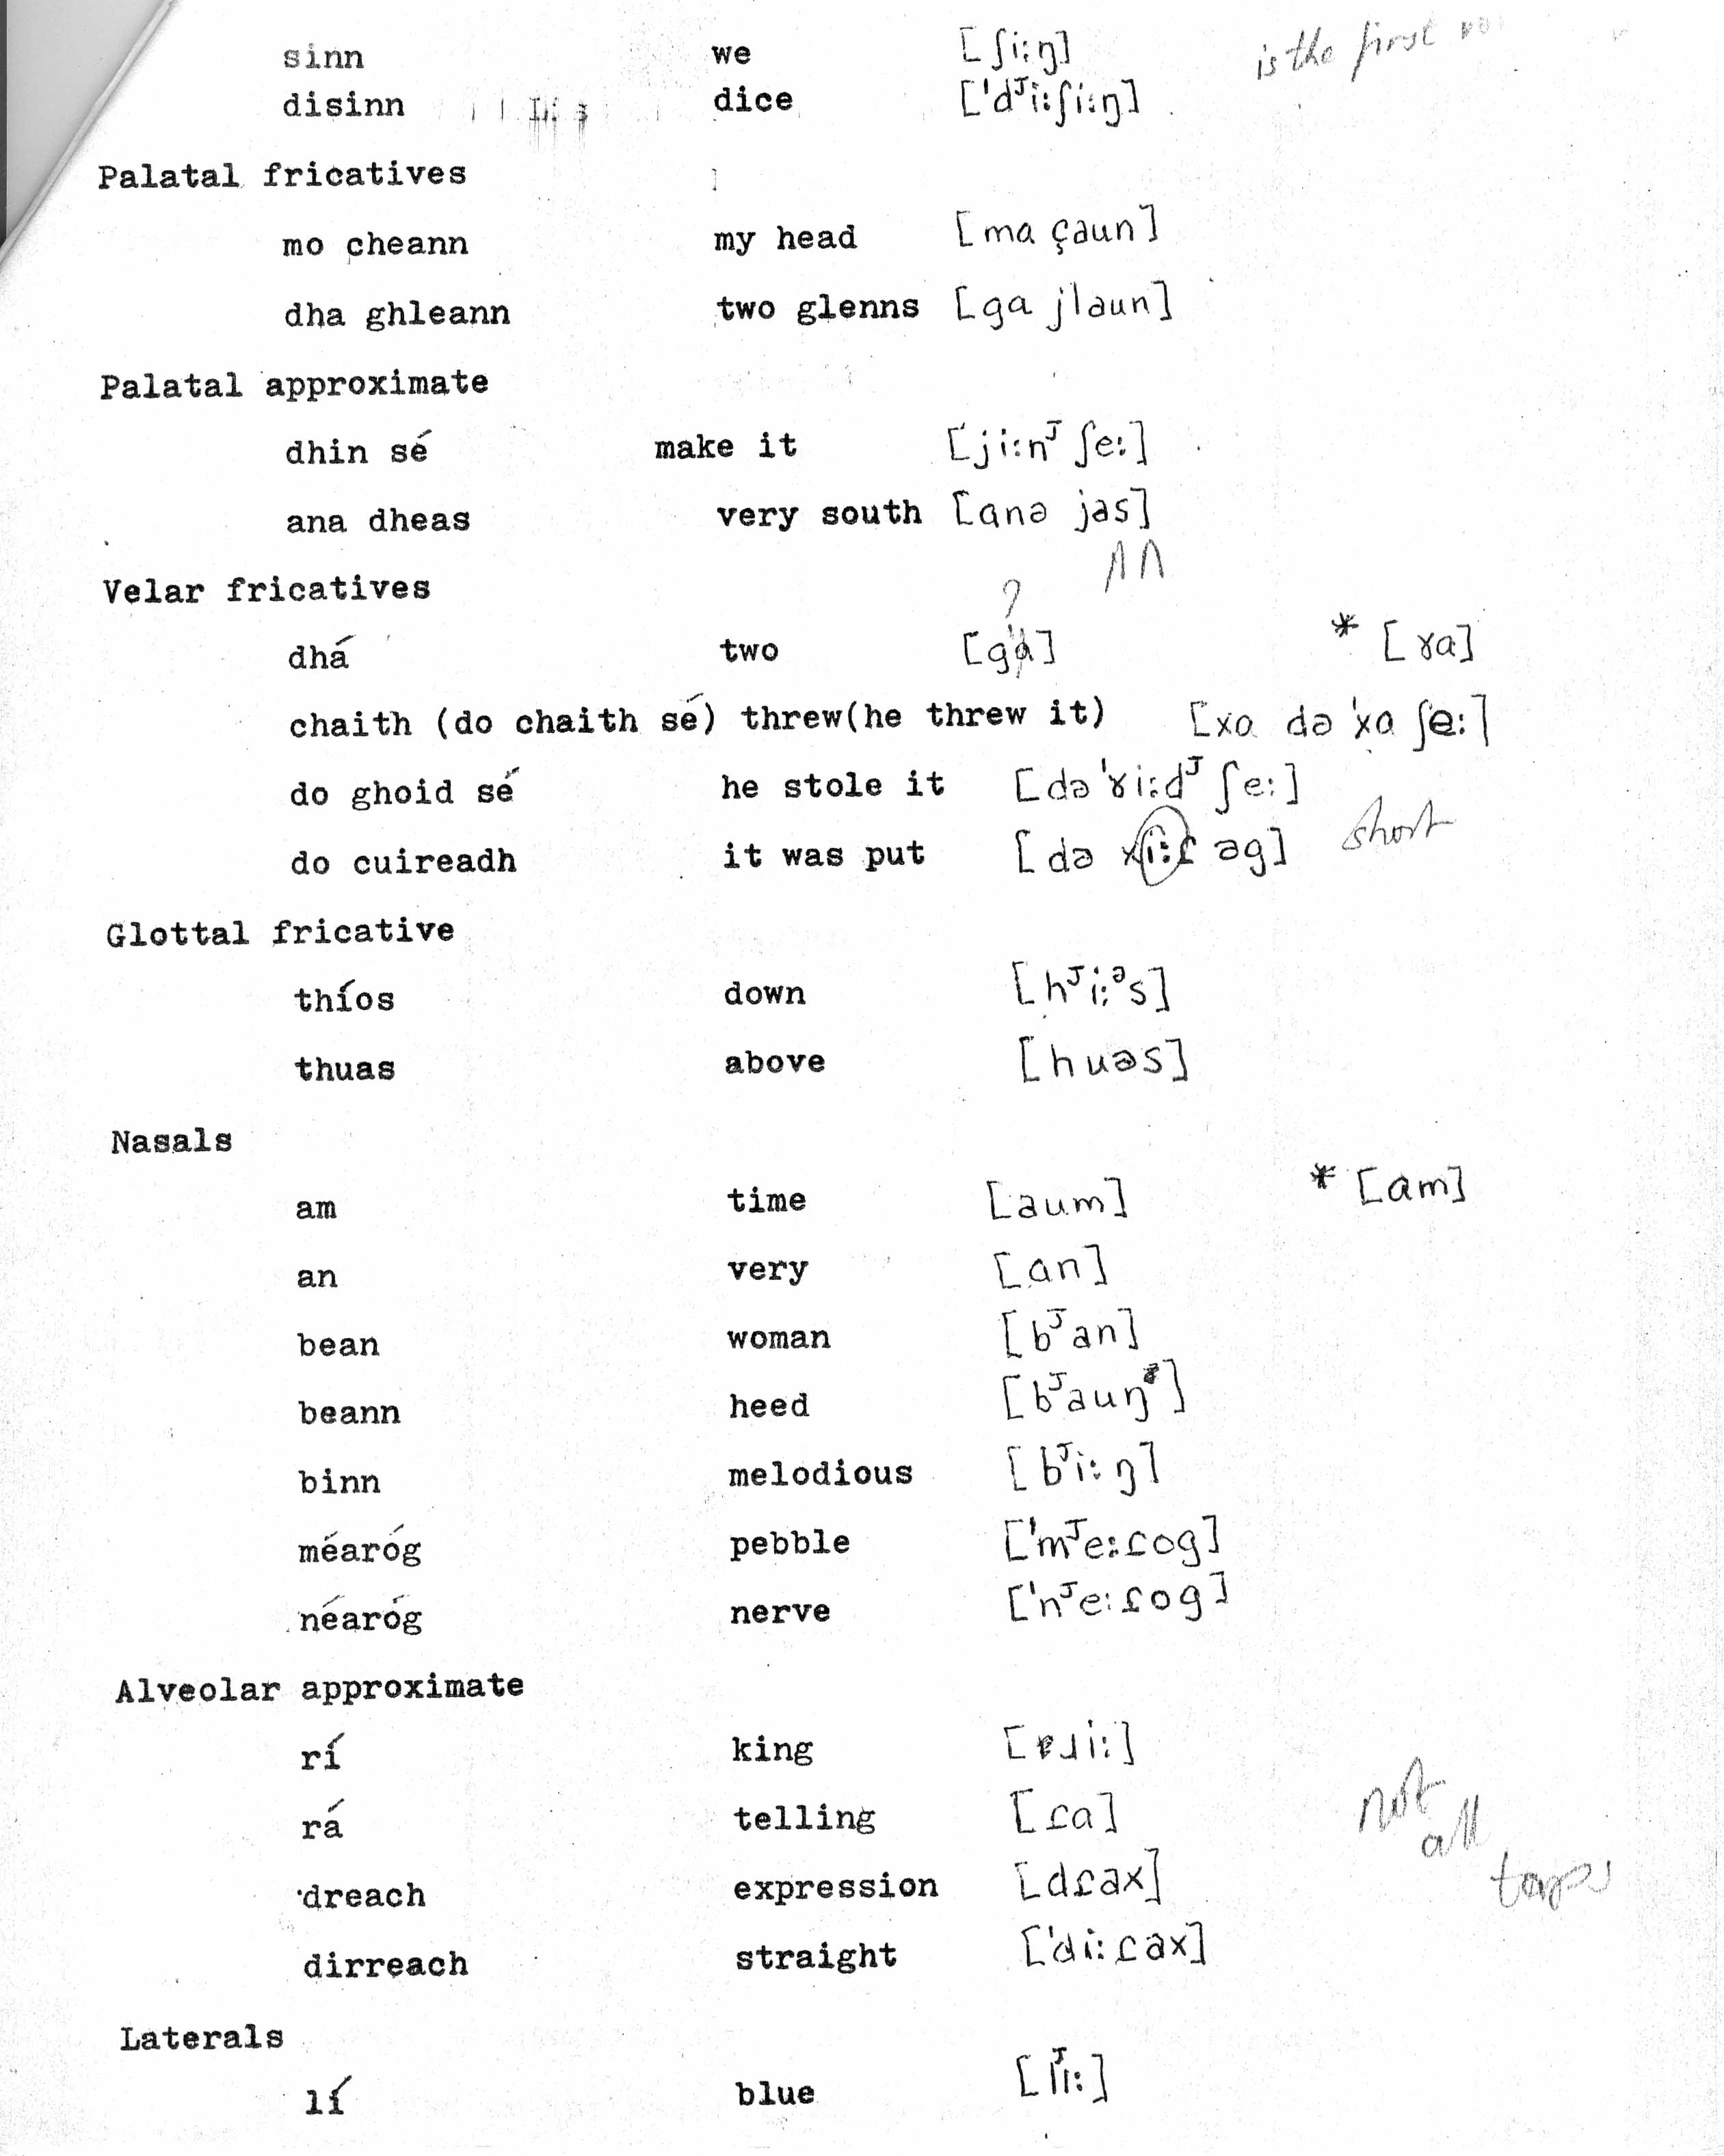 sinn we [ʃiːŋ] is the first
disinn dice [ˈdᴶiːʃiːŋ]
Palatal fricatives
mo cheann my head [ma çəun]
dha ghleann two glenns [ga jləun]
Palatal approximate
dhin sé make it [jiːnᴶ ʃeː]
ana dheas very south [ɑnə jəs]
ʌʌ
Velar fricatives
?
dhá two [ga] * [ɤa]
chaith (do chaith sé) threw(he threw it) [xɑ də ˈxɑ ʃeː]
do ghoid sé he stole it [də ˈɤiːdᴶ ʃeː]
do cuireadh it was put [də xiːɾ əg] short
Glottal fricative
thíos down [hᴶiːᵊs]
thuas above [huəs]
Nasals
am time [aum] * [ɑm]
an very [ɑn]
bean woman [bᴶan]
beann heed [bᴶauŋ]
binn melodious [bᴶiːŋ]
méaróg pebble [ˈmᴶeːɾog]
néaróg nerve [ˈnᴶeːɾog]
Alveolar approximate
rí king [ɹiː]
rá telling [ɾɑ] not
all
dreach expression [dɾax] taps
dirreach straight [ˈdiːɾax]
Laterals
lí blue [lᴶiː]